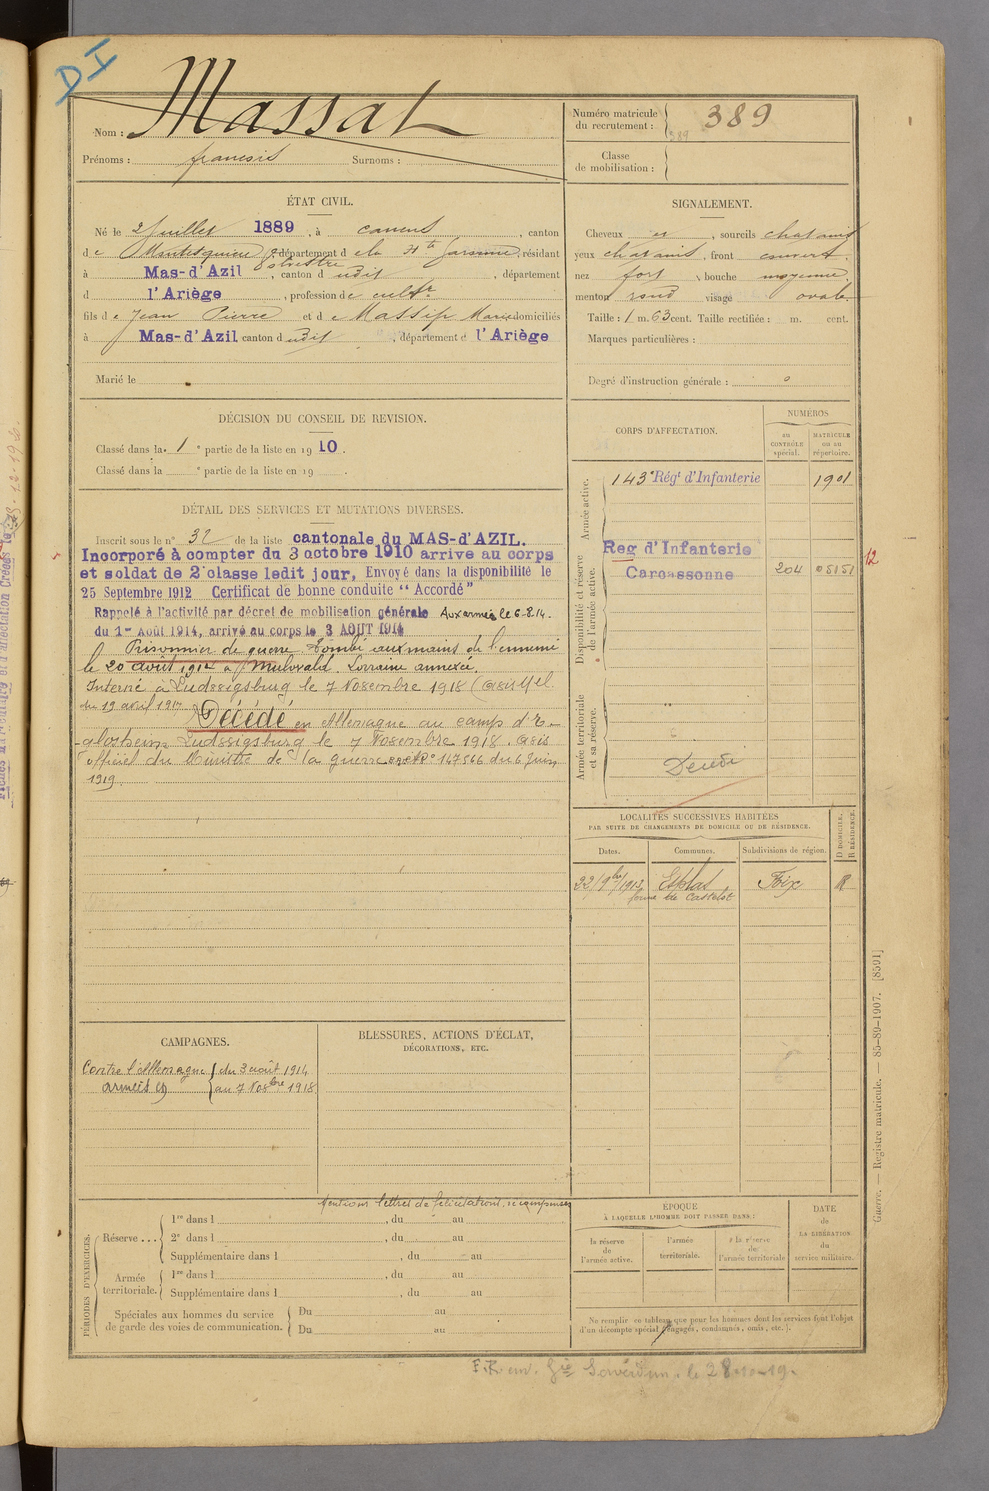 D I
Massat
Nom :
Prénoms : francois Surnoms :
Numéro matricule
du recrutement :
389
389
Classe
de mobilisation :
ÉTAT CIVIL.
Né le 2 Juillet 1889, à canens, canton
de Montesquieu Volvestre, département de la Hte Garonne, résidant
à Mas-d'Azil, canton d udit, département
d l'Ariège, profession de cultr
fils de Jean Pierre et de Massip Marie domiciliés
à Mas-d'Azil canton d udit, département d l'Ariège
Marié le
SIGNALEMENT.
Cheveux et, sourcils chatains
yeux chatains, front couvert
nez fort, bouche moyenne
menton rond visage ovale
Taille : 1 m. 63 cent. Taille rectifiée : m. cent.
Marques particulières :
Degré d'instruction générale : 0
DÉCISION DU CONSEIL DE REVISION.
Classé dans la 1e partie de la liste en 1910.
Classé dans la e partie de la liste en 19 .
DÉTAIL DES SERVICES ET MUTATIONS DIVERSES.
Inscrit sous le n° 32 de la liste cantonale du MAS-d'AZIL.
Incorporé à compter du 3 octobre 1910 arrive au corps
et soldat de 2e classe ledit jour, Envoyé dans la disponibilité le
25 Septembre 1912 Certificat de bonne conduite "Accordé"
Rappelé à l'activité par décret de mobilisation générale Aux armées le 6-8-14.
du 1er Août 1914, arrivé au corps le 3 AOUT 1914
Prisonnier de guerre Tombé aux mains de l'ennemi
le 20 août 1914 à Mulwald. Lorraine annexée.
Interné à Ludssigsburg le 7 Novembre 1918 (avis
du 19 avril
Décédé en Allemagne au camp d'E-
-glosheim Ludssigsburg le 7 Novembre 1918. Avis
officiel du Ministre de la guerre N° 147566 du 6 Juin
1919.
CORPS D'AFFECTATION.
NUMÉROS
au
CONTRÔLE
spécial.
MATRICULE
ou au
répertoire.
Armée active.
143e Régt d'Infanterie 1901
Disponibilité et réserve
de l'armée active.
Reg d'Infanterie
Carcassonne 204 05151
12
Armée territoriale
et sa réserve.
Décédé
LOCALITÉS SUCCESSIVES HABITÉES
PAR SUITE DE CHANGEMENTS DE DOMICILE OU DE RÉSIDENCE.
Dates. Communes. Subdivisions de région. D DOMICILE. R RÉSIDENCE.
22/9bre/1913 Esplas Foix R
ferme de Castelot
CAMPAGNES.
Contre l'Allemagne du 3 août 1914
armées au 7 Novbre 1918
BLESSURES, ACTIONS D'ÉCLAT,
DÉCORATIONS, ETC.
Mentions lettres de félicitations, récompenses
PÉRIODES D'EXERCICES.
Réserve ...
1re dans l , du au
2e dans l , du au
Supplémentaire dans l , du au
Armée
territoriale.
1re dans l , du au
Supplémentaire dans l , du au
Spéciales aux hommes du service
de garde des voies de communication.
Du au
Du au
ÉPOQUE
À LAQUELLE L'HOMME DOIT PASSER DANS :
la réserve
de
l'armée active.
l'armée
territoriale.
la réserve
de
l'armée territoriale
DATE
de
LA LIBÉRATION
du
service militaire.
Ne remplir ce tableau que pour les hommes dont les services font l'objet
d'un décompte spécial (engagés, condamnés, omis, etc.).
Guerre. — Registre matricule. — 85-89-1907. [8591]
F.R em. Gie Saverdun. le 28-10-19.